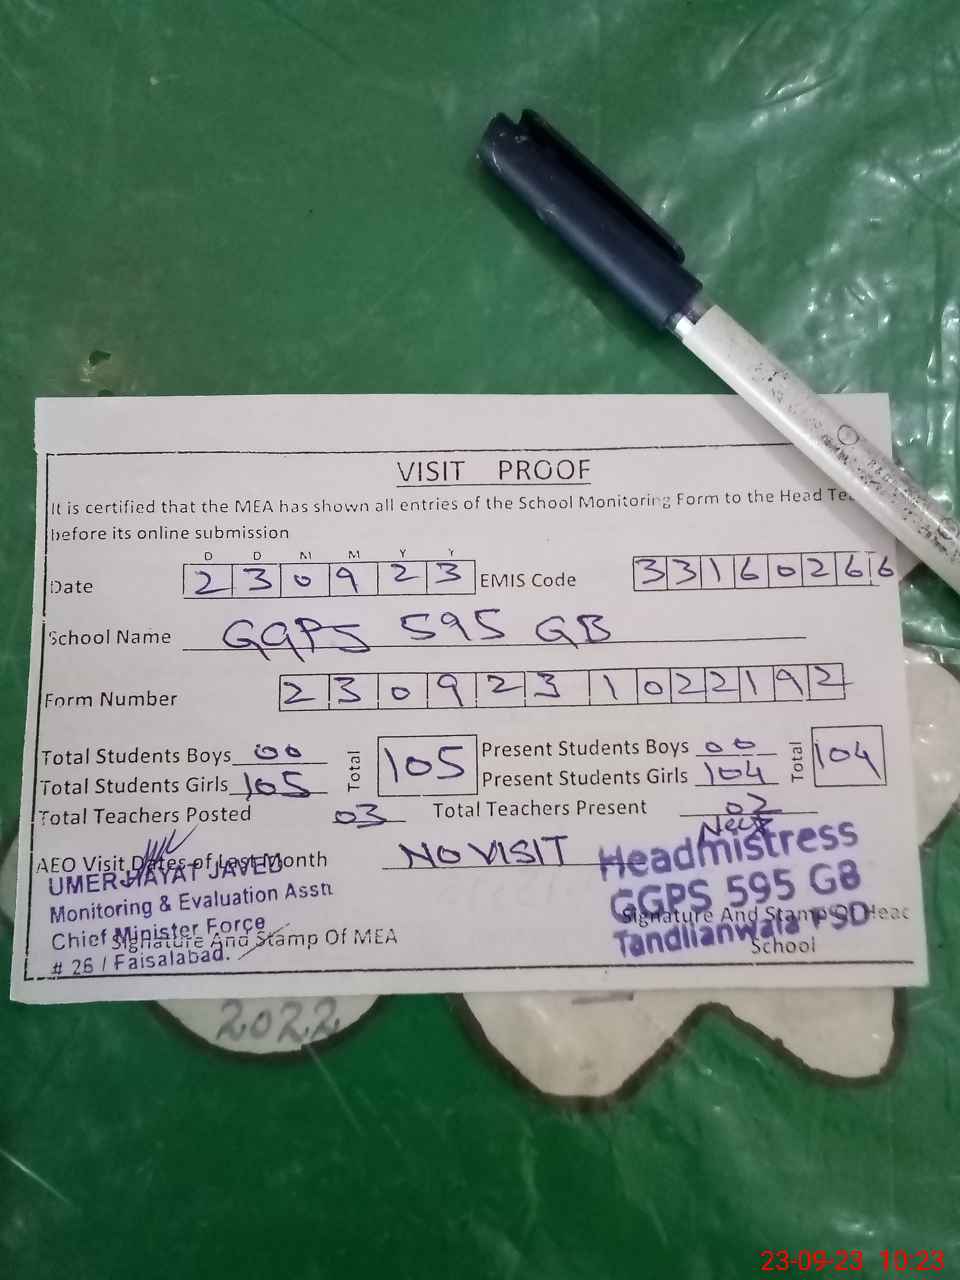 VISIT PROOF
It is certified that the MEA has shown all entries of the School Monitoring Form to the Head Te
before its online submission
D D M M Y Y
Date 2 3 0 9 2 3 EMIS Code 3 3 1 6 0 2 6 6
School Name GGPS 595 GB
Form Number 2 3 0 9 2 3 1 0 2 2 1 9 2
Total Students Boys 00 Total 105 Present Students Boys 00 Total 104
Total Students Girls 105 Present Students Girls 104
Total Teachers Posted 03 Total Teachers Present 02
AEO Visit Dates of Last Month NO VISIT
UMER HAYAT JAVED
Monitoring & Evaluation Asstt
Chief Minister Force
# 26 / Faisalabad.
Signature And Stamp Of MEA
Headmistress
GGPS 595 GB
Tandlianwala FSD
Signature And Stamp Of Head
School
2022
23-09-23 10:23